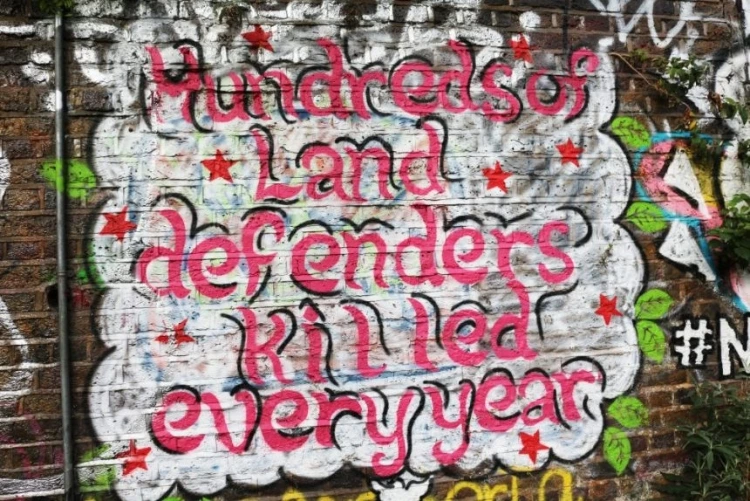 Hundreds of
Land
defenders
killed
every year
#N